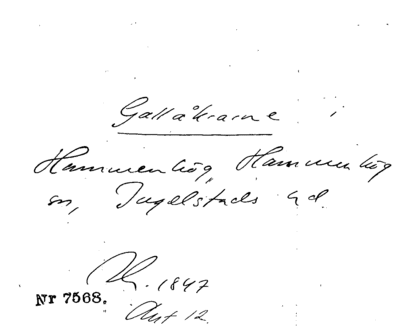 Gallåkrarne i
Hammenhög, Hammenhög
sn, Ingelstads hd.
1847
Nr 7568.
Akt 12.